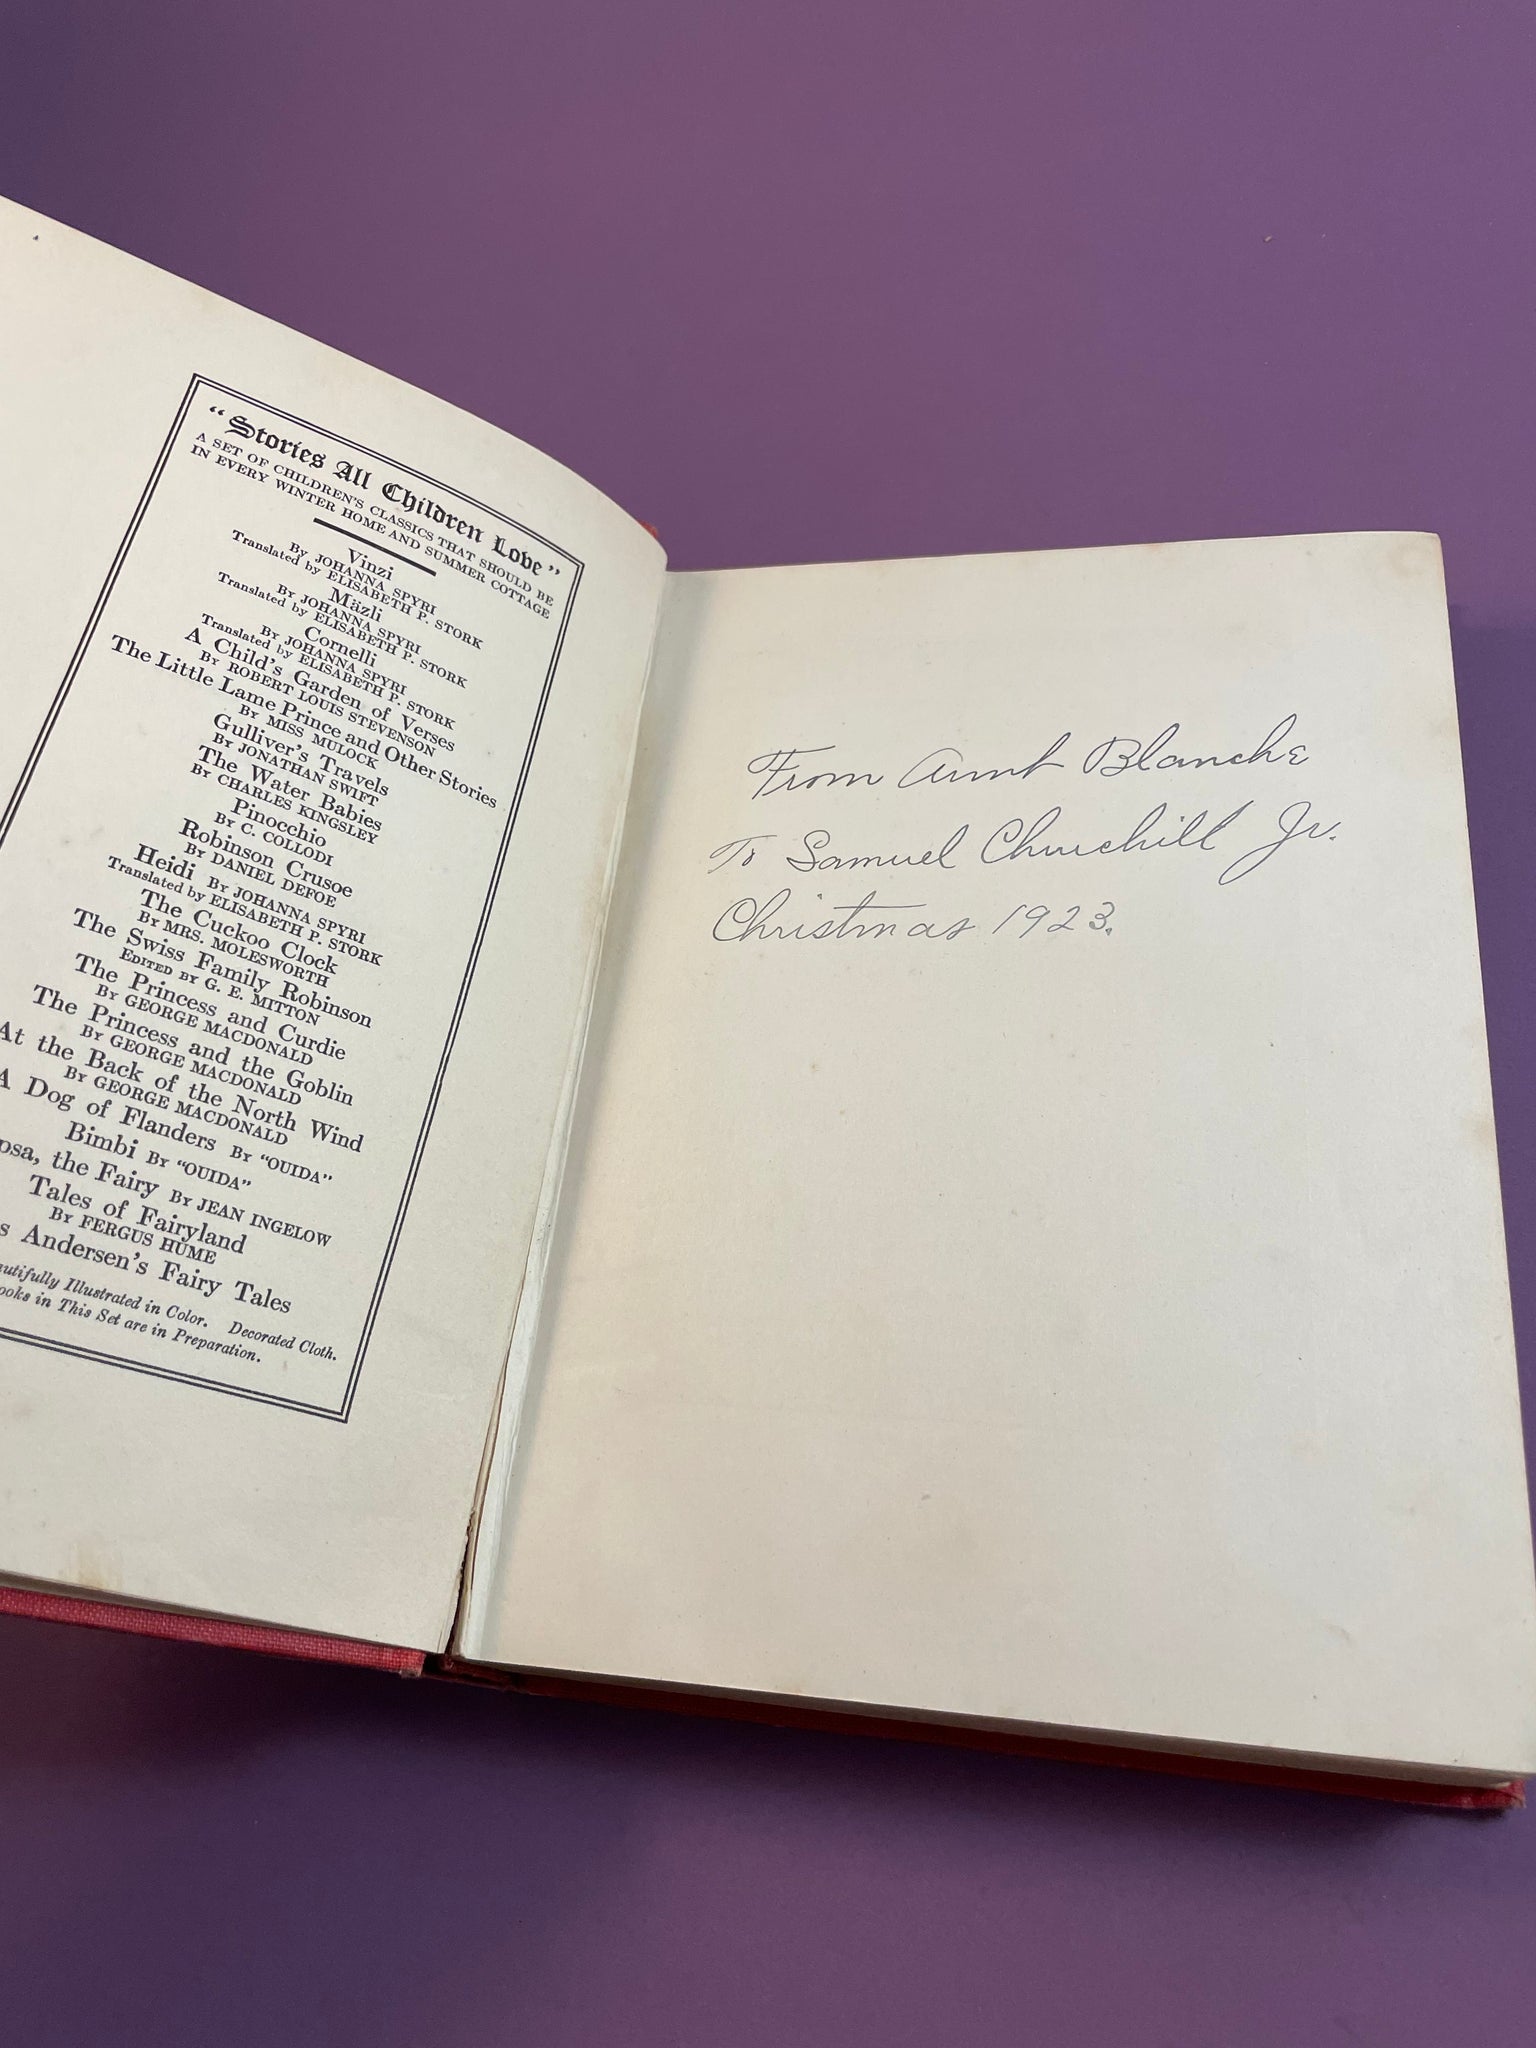 "Stories All Children Love"
A SET OF CHILDREN'S CLASSICS THAT SHOULD BE
IN EVERY WINTER HOME AND SUMMER COTTAGE
Vinzi
By JOHANNA SPYRI
Translated by ELISABETH P. STORK
Mäzli
By JOHANNA SPYRI
Translated by ELISABETH P. STORK
Cornelli
By JOHANNA SPYRI
Translated by ELISABETH P. STORK
A Child's Garden of Verses
By ROBERT LOUIS STEVENSON
The Little Lame Prince and Other Stories
By MISS MULOCK
Gulliver's Travels
By JONATHAN SWIFT
The Water Babies
By CHARLES KINGSLEY
Pinocchio
By C. COLLODI
Robinson Crusoe
By DANIEL DEFOE
Heidi By JOHANNA SPYRI
Translated by ELISABETH P. STORK
The Cuckoo Clock
By MRS. MOLESWORTH
The Swiss Family Robinson
EDITED BY G. E. MITTON
The Princess and Curdie
By GEORGE MACDONALD
The Princess and the Goblin
By GEORGE MACDONALD
At the Back of the North Wind
By GEORGE MACDONALD
A Dog of Flanders By "OUIDA"
Bimbi By "OUIDA"
the Fairy By JEAN INGELOW
Tales of Fairyland
By FERGUS HUME
Andersen's Fairy Tales
Illustrated in Color. Decorated Cloth.
in This Set are in Preparation.
From Aunt Blanche
To Samuel Churchill Jr.
Christmas 1923.